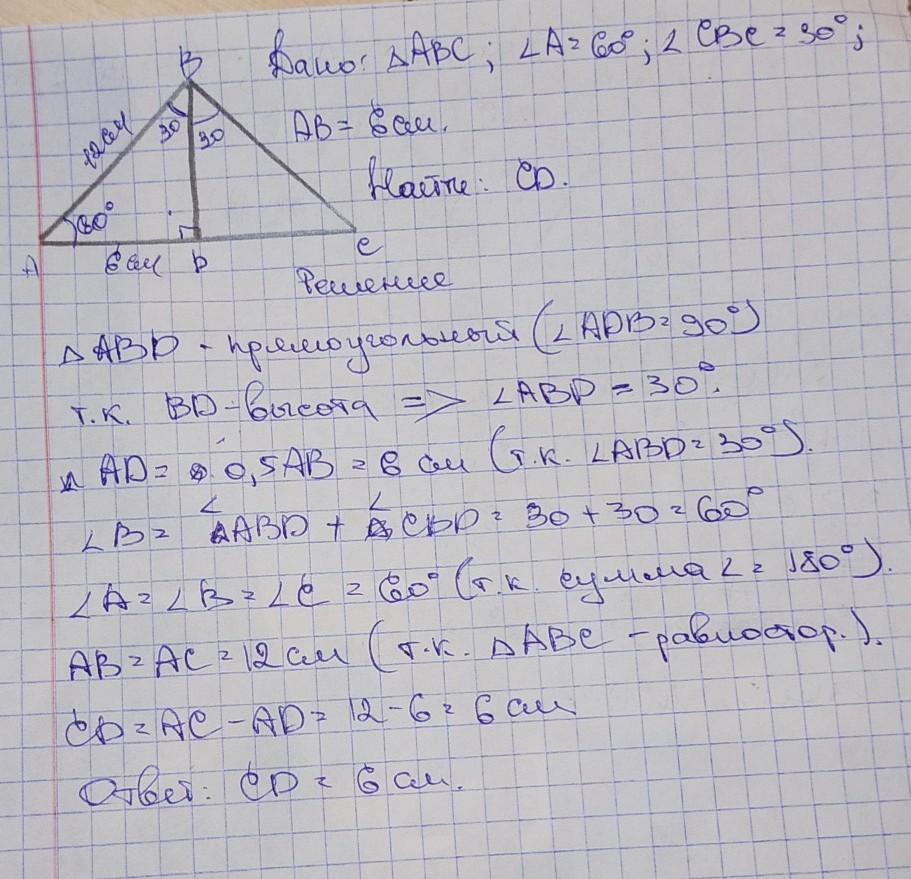 B Дано: △ABC; ∠A=60°; ∠CBC=30°;
12см 30 30 AB= 6см.
Найти: CD.
60°
A 6см D C
Решение
△ABD - прямоугольный (∠ADB=90°)
т.к. BD-высота => ∠ABD = 30°.
и AD= 0,5AB = 6 см (т.к. ∠ABD=30°).
∠B= ∠ABD + ∠CBD= 30+30=60°
∠A=∠B=∠C=60° (т.к. сумма ∠= 180°).
AB=AC=12см (т.к. △ABC -равностор.).
CD=AC-AD=12-6=6см.
Ответ: CD = 6 см.